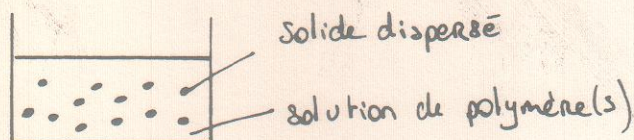 solide dispersé
solution de polymère(s)